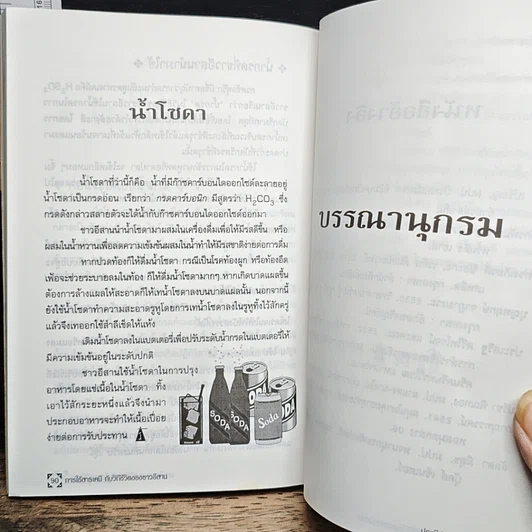 น้ำโซดา
น้ำโซดาที่ว่านี้ก็คือ น้ำที่มีก๊าซคาร์บอนไดออกไซด์ละลายอยู่
น้ำโซดาเป็นกรดอ่อน เรียกว่า กรดคาร์บอนิก มีสูตรว่า H2CO3 ซึ่ง
กรดดังกล่าวสลายตัวจะได้น้ำกับก๊าซคาร์บอนไดออกไซด์ออกมา
ชาวอีสานนำน้ำโซดามาผสมในเครื่องดื่มเพื่อให้มีรสดีขึ้น หรือ
ผสมในน้ำหวานเพื่อลดความเข้มข้นผสมในน้ำทำให้มีรสชาติง่ายต่อการดื่ม
หากปวดท้องก็ให้ดื่มน้ำโซดา กรณีเป็นโรคท้องผูก หรือท้องอืด
เฟ้อจะช่วยระบายลมในท้อง ก็ให้ดื่มน้ำโซดามากๆ หากเกิดบาดแผลขึ้น
ต้องการล้างแผลให้สะอาดก็ให้เทน้ำโซดาลงบนบาดแผลนั้น นอกจากนี้
ยังใช้น้ำโซดาทำความสะอาดรูหูโดยการเทน้ำโซดาลงในรูหูทิ้งไว้สักครู่
แล้วจึงเทออกใช้สำลีเช็ดให้แห้ง
เติมน้ำโซดาลงในแบตเตอรี่เพื่อปรับระดับน้ำกรดในแบตเตอรี่ให้
มีความเข้มข้นอยู่ในระดับปกติ
ชาวอีสานใช้น้ำโซดาในการปรุง
อาหารโดยแช่เนื้อในน้ำโซดา ทิ้ง
เอาไว้สักระยะหนึ่งแล้วจึงนำมา
ประกอบอาหารจะทำให้เนื้อเปื่อย
ง่ายต่อการรับประทาน
SODA
SODA
SODA
Soda
90 การใช้สารเคมี กับวิถีชีวิตของชาวอีสาน
บรรณานุกรม